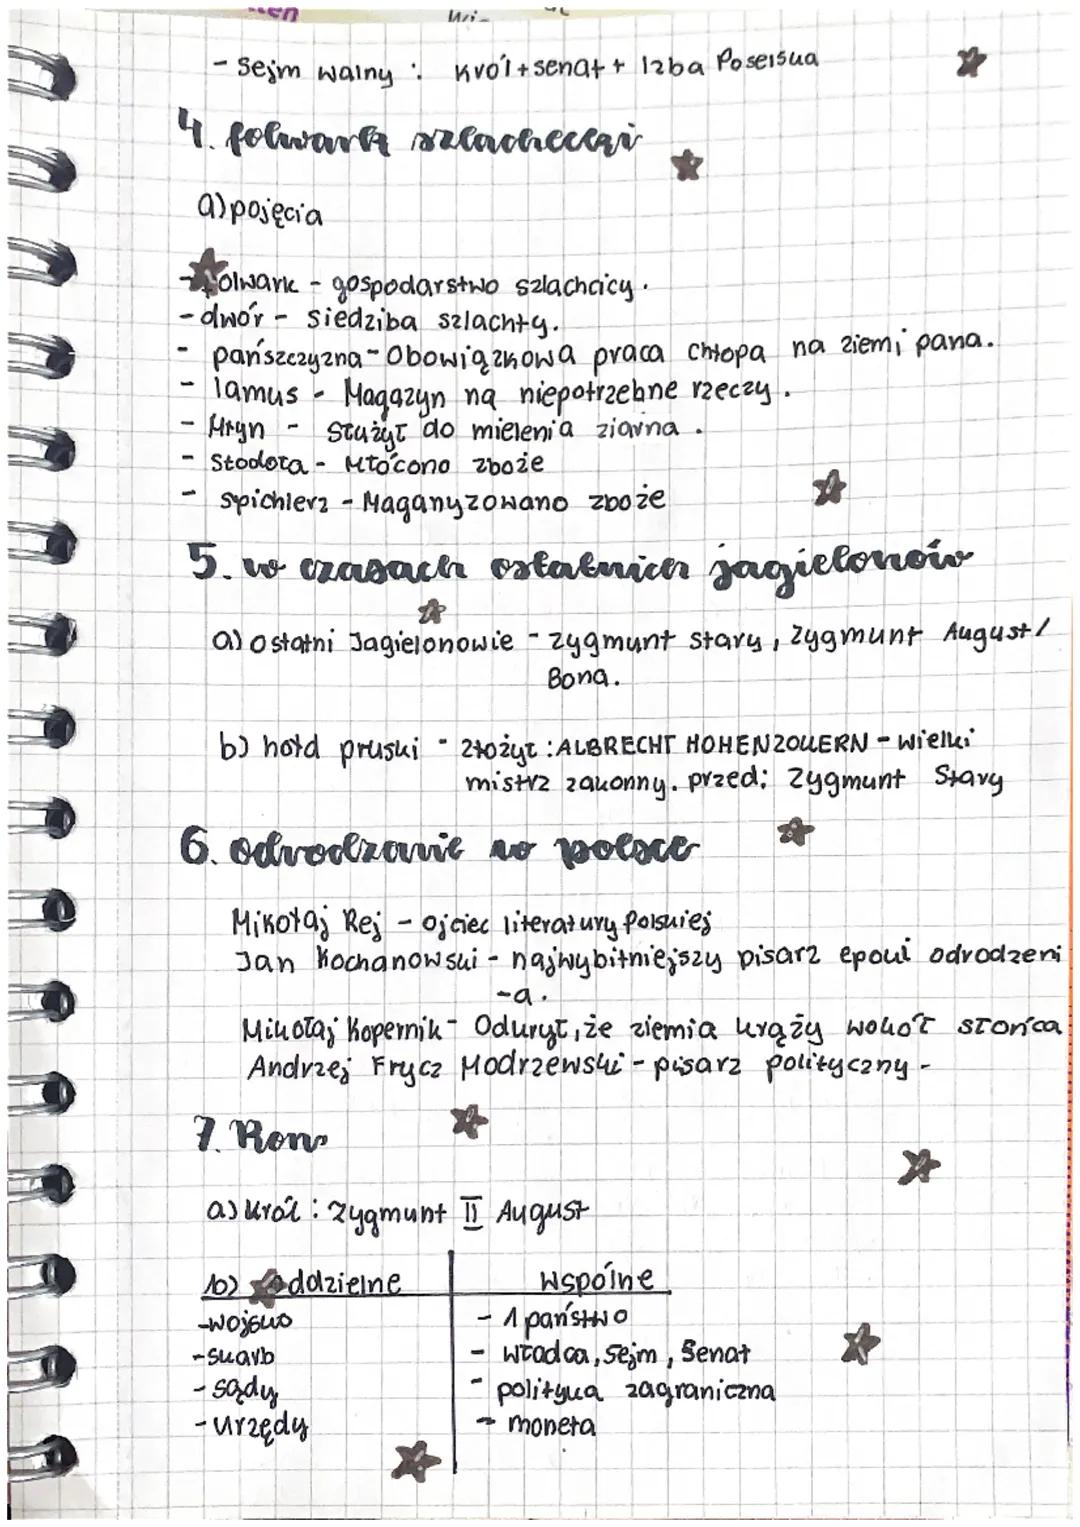 - Sejm walny : król + senat + Izba Poselska
4. folwark szlachecki
a) pojęcia
- folwark - gospodarstwo szlachcicy.
- dwór - siedziba szlachty.
- pańszczyzna - Obowiązkowa praca chłopa na ziemi pana.
- lamus - Magazyn na niepotrzebne rzeczy.
- Młyn - służył do mielenia ziarna.
- Stodoła - Młócono zboże
- spichlerz - Maganyzowano zboże
5. w czasach ostatnich jagielonów
a) ostatni Jagielonowie - zygmunt stary, zygmunt August /
Bona.
b) hołd pruski - złożył : ALBRECHT HOHENZOLLERN - wielki
mistrz zakonny. przed: Zygmunt Stary
6. odrodzenie w polsce
Mikołaj Rej - ojciec literatury polskiej
Jan Kochanowski - najwybitniejszy pisarz epoki odrodzeni
-a.
Mikołaj Kopernik - Odkrył, że ziemia krąży wokół słońca
Andrzej Frycz Modrzewski - pisarz polityczny -
7. Ron
a) król : zygmunt II August
b) oddzielne Wspólne
- wojsko - 1 państwo
- skarb - władca, Sejm, Senat
- sądy - polityka zagraniczna
- urzędy - moneta